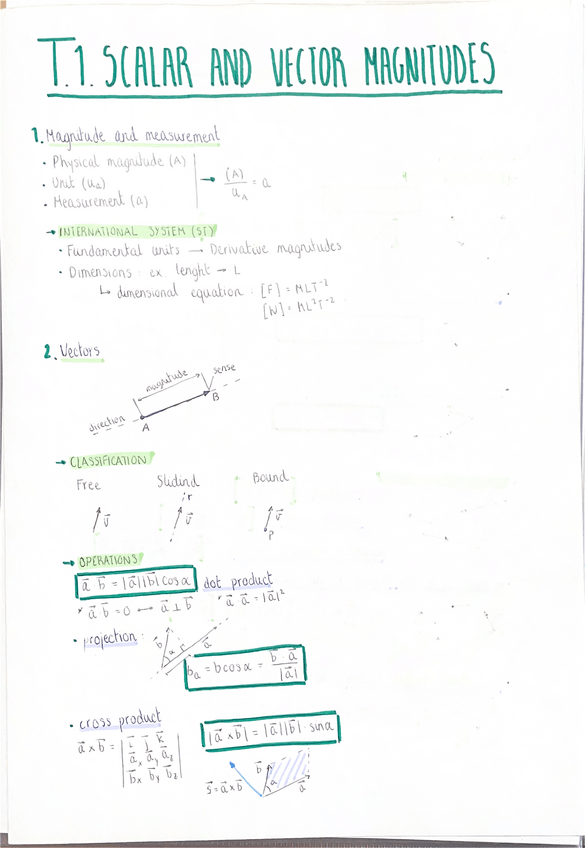 T.1. SCALAR AND VECTOR MAGNITUDES
1. Magnitude and measurement
· Physical magnitude (A)
· Unit (uA)
· Measurement (a)
→ (A)/uA = a
→ INTERNATIONAL SYSTEM (SI)
· Fundamental units → Derivative magnitudes
· Dimensions : ex lenght → L
↳ dimensional equation : [F] = MLT⁻²
[W] = ML²T⁻²
2. Vectors
magnitude
sense
direction
A
B
→ CLASSIFICATION
Free Slidind Bound
v⃗ r v⃗ v⃗ P
→ OPERATIONS
a⃗ b⃗ = |a⃗||b⃗| cos α dot product
* a⃗ b⃗ = 0 ↔ a⃗ ⊥ b⃗ * a⃗ a⃗ = |a⃗|²
· projection :
b⃗ α r a⃗
ba = b cos α = b⃗ a⃗/|a⃗|
· cross product
a⃗ x b⃗ = | i⃗ j⃗ k⃗
a⃗x a⃗y a⃗z
b⃗x b⃗y b⃗z |
|a⃗ x b⃗| = |a⃗||b⃗| · sin α
s⃗ = a⃗ x b⃗
b⃗ α a⃗